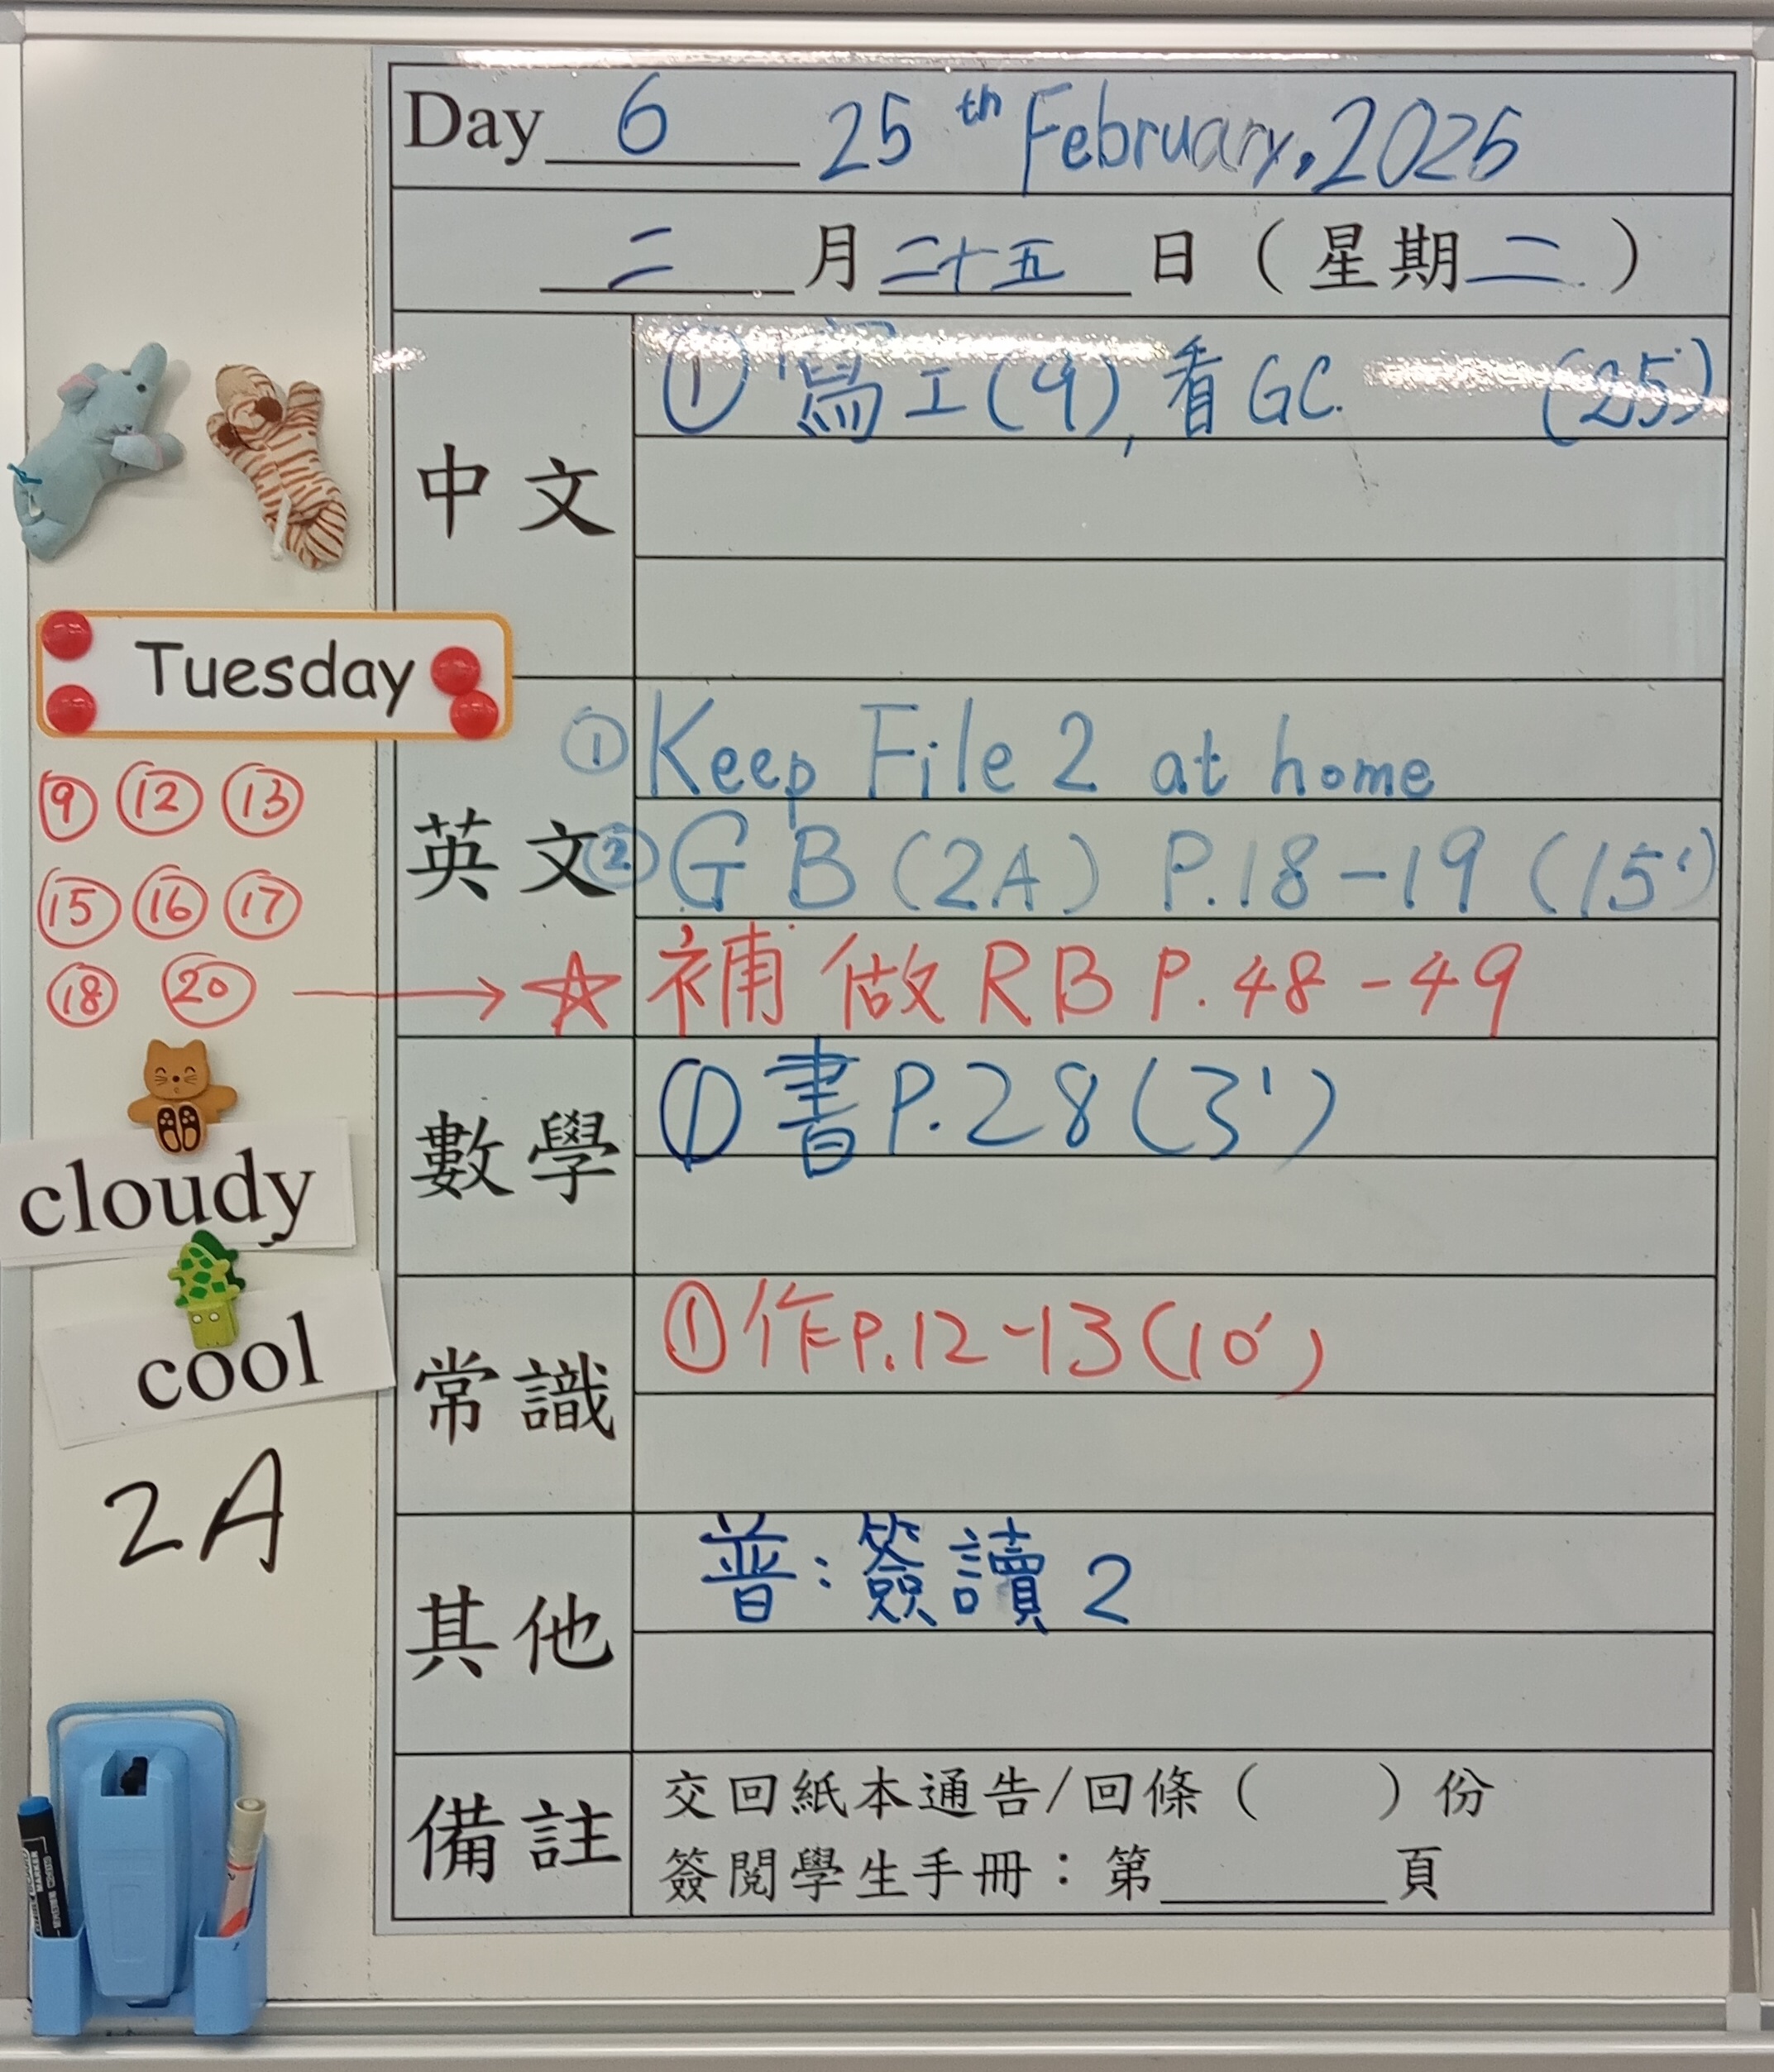 Day 6 25th February, 2025
二 月 二十五 日 ( 星期二 )
中文
① 寫工(9), 看GC. (25')
Tuesday
英文
① Keep File 2 at home
② GB (2A) P.18-19 (15')
⑨ ⑫ ⑬
⑮ ⑯ ⑰
⑱ ⑳ → ☆ 補做RB P.48-49
數學
① 書P.28(3')
cloudy
cool
常識
① 作P.12-13(10')
2A
其他
普:簽讀2
備註
交回紙本通告/回條 ( ) 份
簽閱學生手冊：第______頁